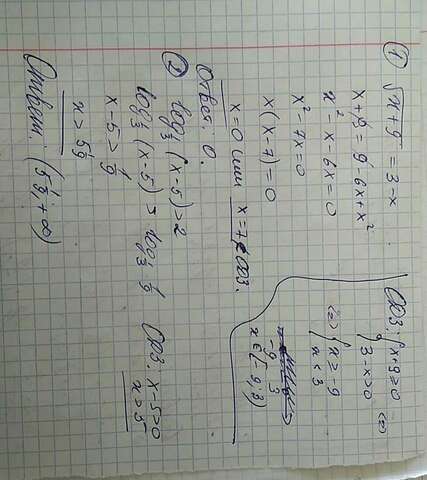 ① √x+9 = 3-x
x+9 = 9-6x+x²
x²-x-6x=0
x²-7x=0
x(x-7)=0
x=0 или x=7∉ОДЗ.
Ответ: 0.
ОДЗ: { x+9≥0
3-x>0 (=)
(=) { x≥-9
x<3
-9 3
x∈[-9;3)
② log⅓(x-5)>2
log⅓(x-5)>log⅓ 1/9
x-5>1/9
x>5 1/9
ОДЗ: x-5>0
x>5
Ответ: (5 1/9; +∞)